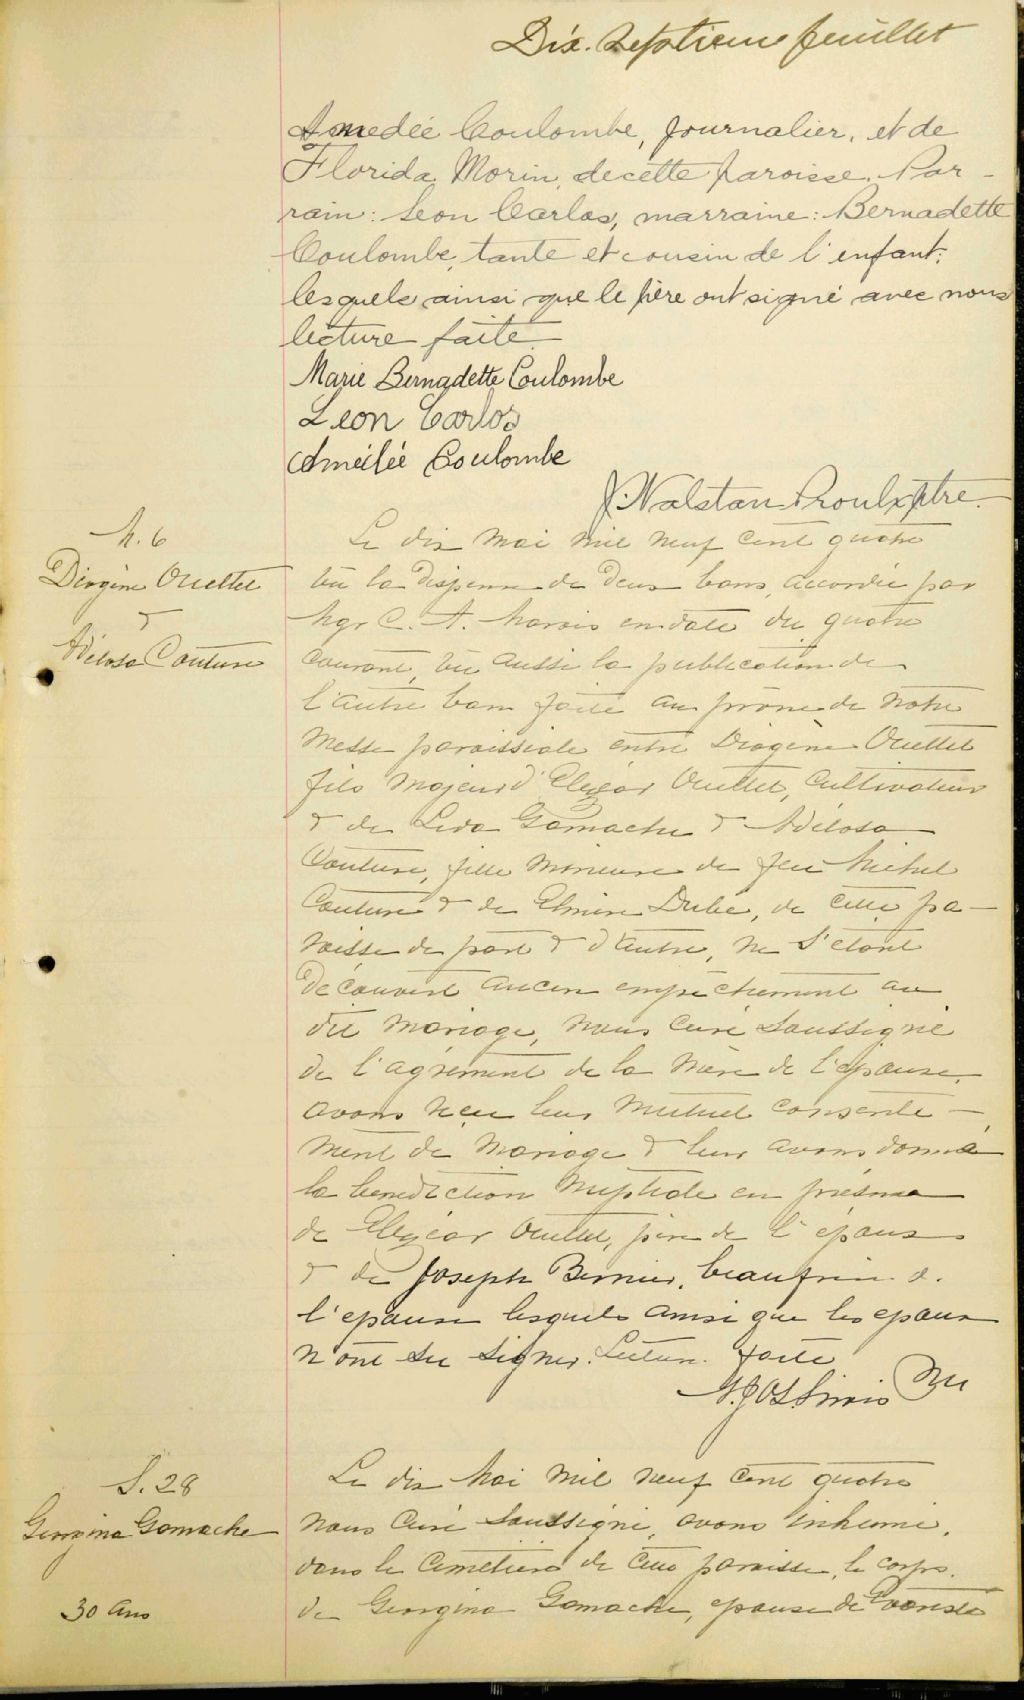 Dix-Septieme feuillet
Amedée Coulombe, journalier, et de
Florida Morin, de cette paroisse. Par-
rain: Leon Carlos, marraine: Bernadette
Coulombe, tante et cousin de l'enfant;
lesquels ainsi que le père ont signé avec nous
lecture faite.
Marie Bernadette Coulombe
Leon Carlos
Amédée Coulombe
J. Nalstan Proulx ptre.
M. 6
Diogène Ouellet
&
Adélosa Couture
Le dix Mai mil neuf cent quatre
Vu la dispense de deux bans, accordée par
Mgr C. A. Marois en date du quatre
courant, vu aussi la publication de
l'autre ban faite au prône de notre
Messe paroissiale entre Diogène Ouellet
fils majeur d'Elzéar Ouellet, Cultivateur
& de Leda Gamache & Adélosa
Couture, fille mineure de feu Michel
Couture & de Elmire Dubé, de cette pa-
roisse de part & d'autre, ne s'étant
découvert aucun empêchement au
dit mariage, nous curé soussigné
de l'agrément de la Mère de l'épouse,
avons reçu leur mutuel consente-
ment de mariage & leur avons donné
la bénédiction nuptiale en présence
de Elzéar Ouellet, père de l'époux
& de Joseph Bernier, beaufrère d.
l'épouse lesquels ainsi que les epoux
n'ont su signer. Lecture faite
S. 28
Georgina Gamache
30 ans
Le dix Mai mil neuf cent quatre
nous curé soussigné, avons inhumé,
dans le Cimetière de cette paroisse, le corps.
de Georgina Gamache, epouse de Evariste